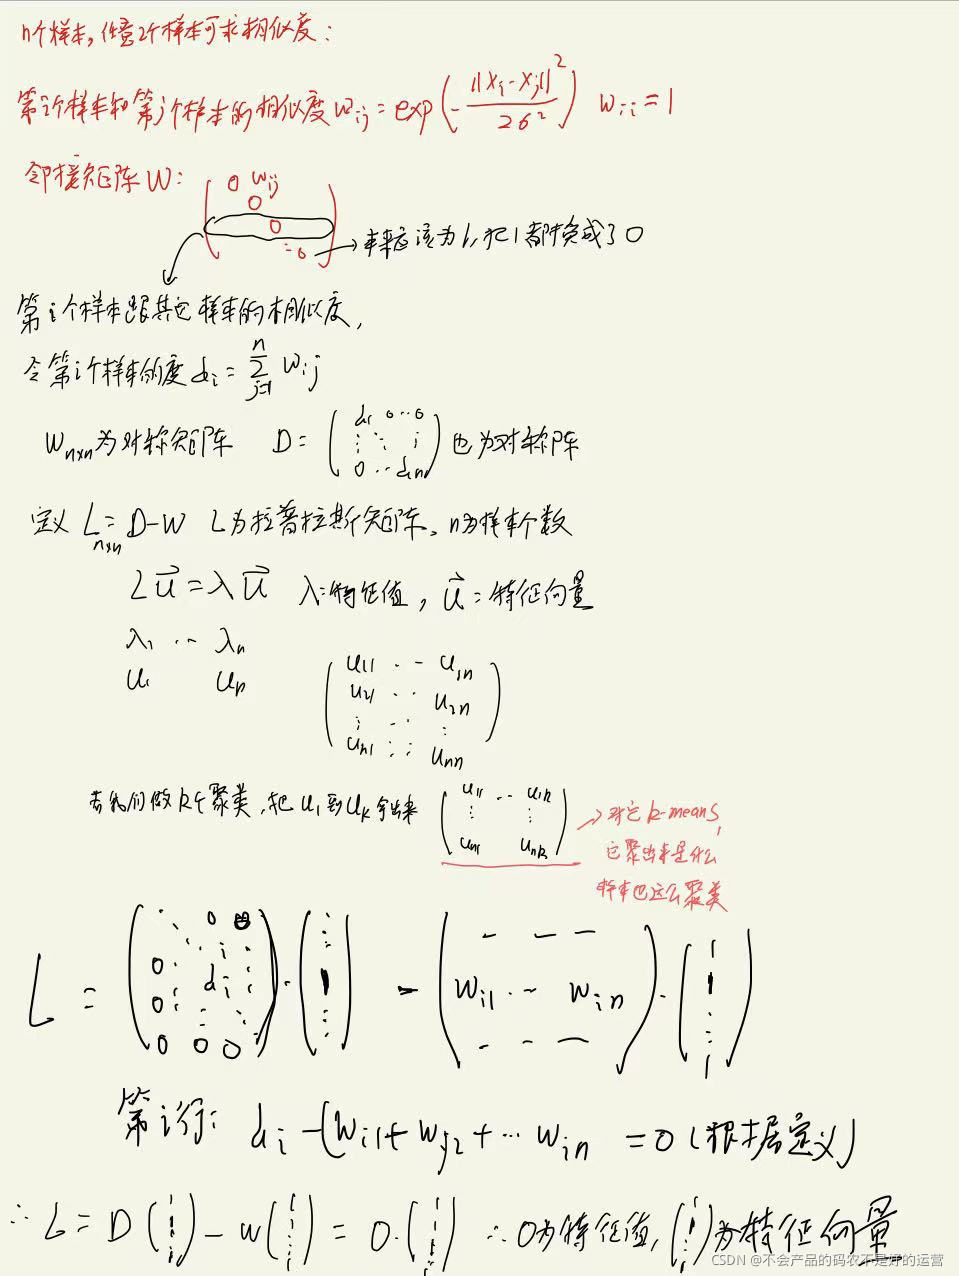 n个样本,任意2个样本可求相似度:
第i个样本和第j个样本的相似度 wij = exp(-||xi-xj||²/2σ²) wii=1
邻接矩阵W: (0 wij 0 0 =0)
→本来应该为1,把1都换成了0
第i个样本跟其它样本的相似度,
令第i个样本的度 di = n Σ j=1 wij
Wnxn为对称矩阵 D= (d1 0…0 ⋮ ⋱ ⋮ 0 … dn) 也为对称阵
定义 L = D-W L为拉普拉斯矩阵,n为样本个数
nxn
Lu = λu λ:特征值, u=特征向量
λ1 … λn
u1 un
(u11 … u1n
u21 … u2n
⋮ … ⋮
un1 … unn)
若我们做k个聚类,把u1到uk拿出来 (u11 … u1k ⋮ ⋮ un1 unk)
→对它k-means,
它聚出来是什么
样本也这么聚类
L = (⋱ 0 0 0 di 0 0 0 0) · (⋮ 1 ⋮) - (- - - wi1 … win - - -) · (1 1 ⋮ 1)
第i行: di -(wi1+wj2+…win =0 (根据定义)
∴ L = D(1 1 ⋮ 1) - W(1 ⋮ 1) = 0·(1 1 1) ∴0为特征值,(1 1 ⋮ 1)为特征向量
CSDN @不会产品的码农不是好的运营